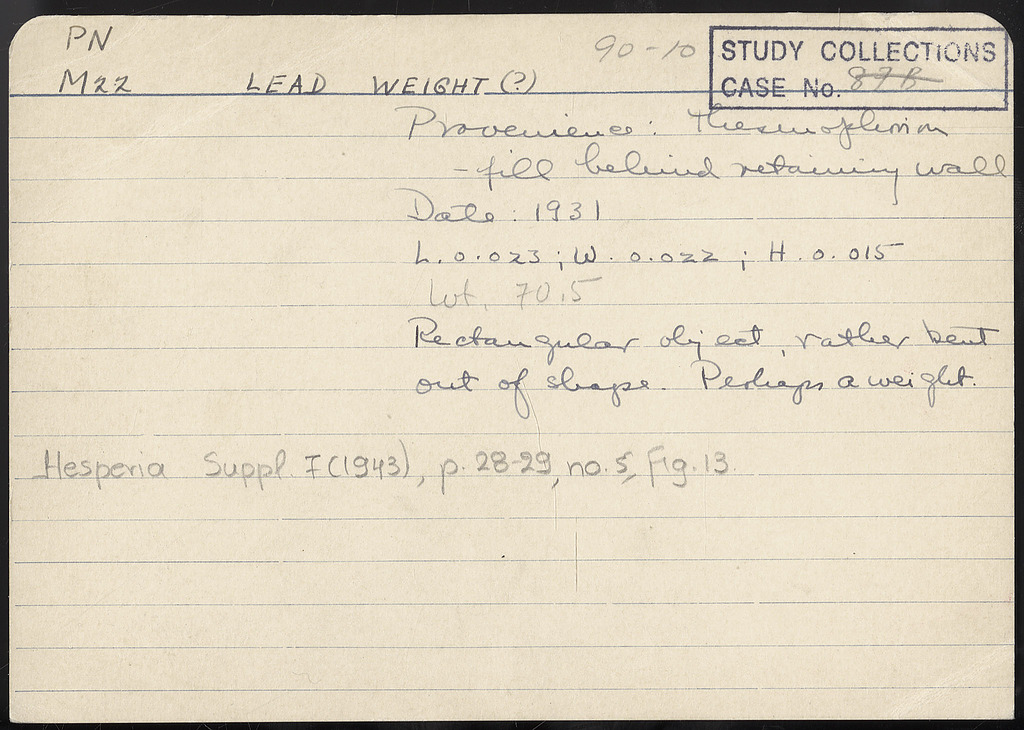 PN
90-10
STUDY COLLECTIONS
CASE No. 87B
M22 LEAD WEIGHT (?)
Provenience: Thesmophorion
- fill behind retaining wall
Date: 1931
L. 0.023; W. 0.022; H. 0.015
Wt. 70.5
Rectangular object, rather bent
out of shape. Perhaps a weight.
Hesperia Suppl. 7 (1943), p. 28-29, no. 5, fig. 13.